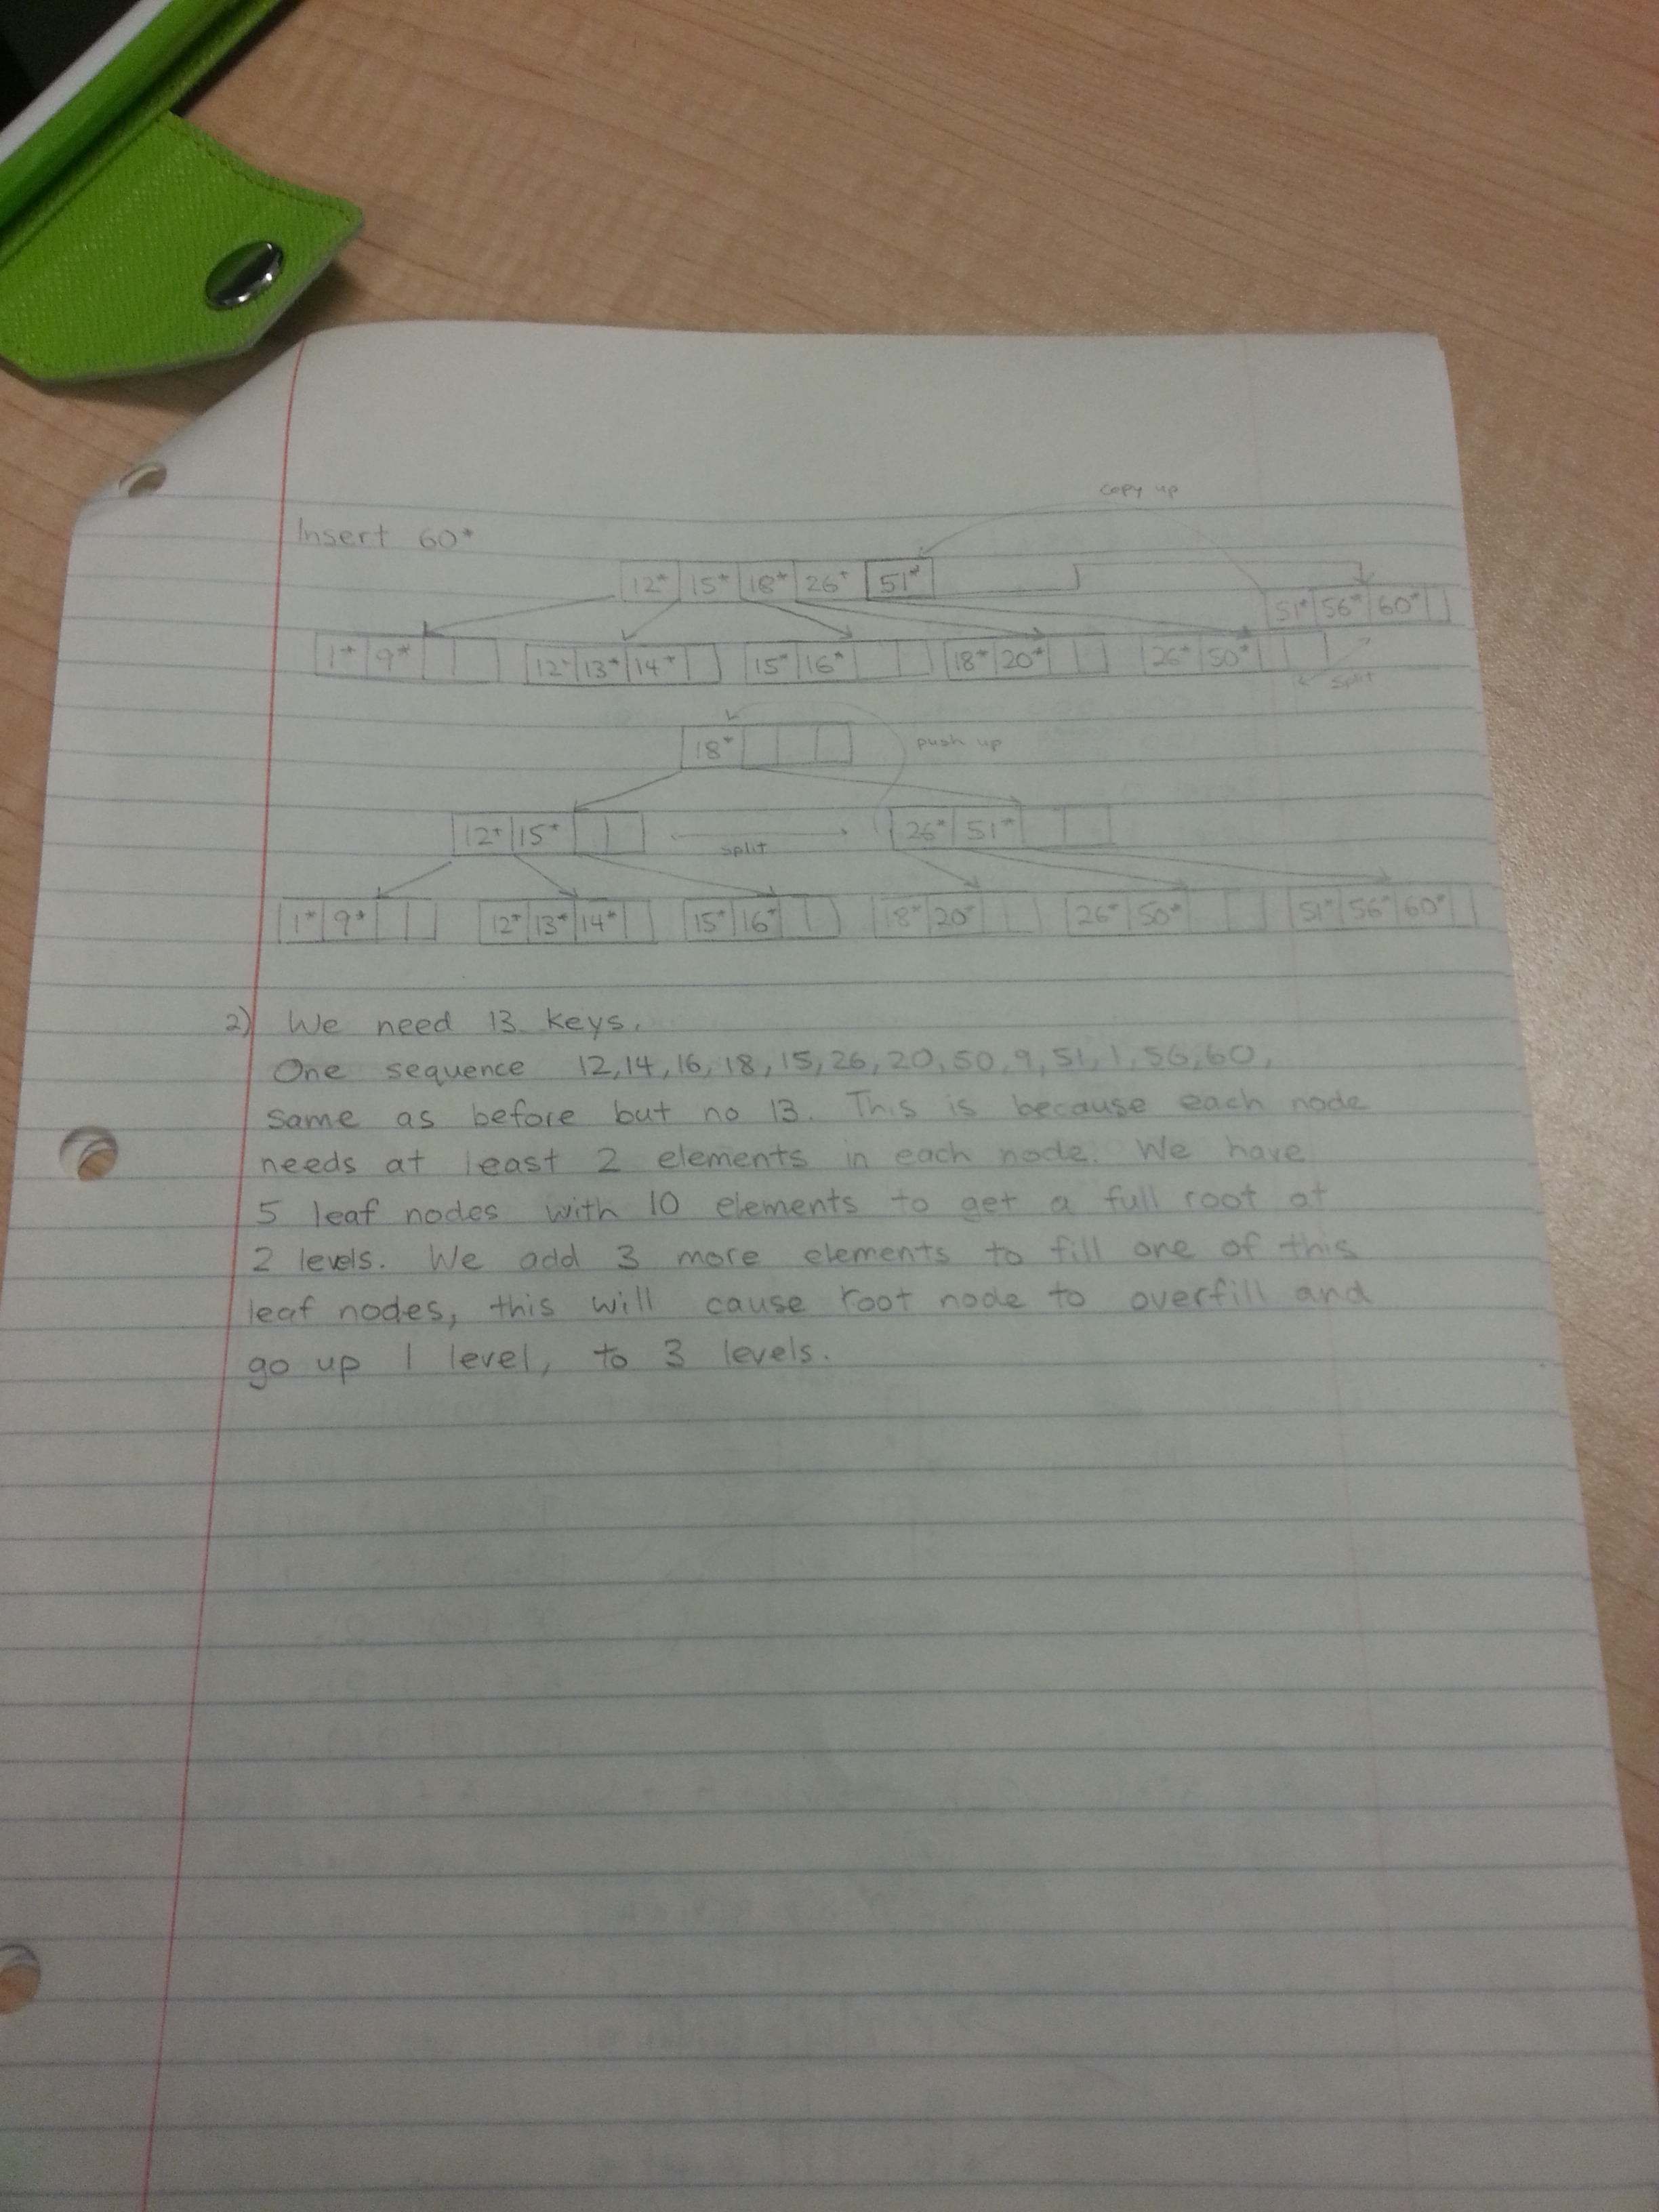 copy up
Insert 60*
12* 15* 18* 26* 51*
51* 56* 60*
1* 9* 12* 13* 14* 15* 16* 18* 20* 26* 50*
split
18* push up
12* 15* split 26* 51*
1* 9* 12* 13* 14* 15* 16* 18* 20* 26* 50* 51* 56* 60*
2) We need 13 keys.
One sequence 12,14,16,18,15,26,20,50,9,51,1,56,60,
same as before but no 13. This is because each node
needs at least 2 elements in each node. We have
5 leaf nodes with 10 elements to get a full root at
2 levels. We add 3 more elements to fill one of this
leaf nodes, this will cause root node to overfill and
go up 1 level, to 3 levels.